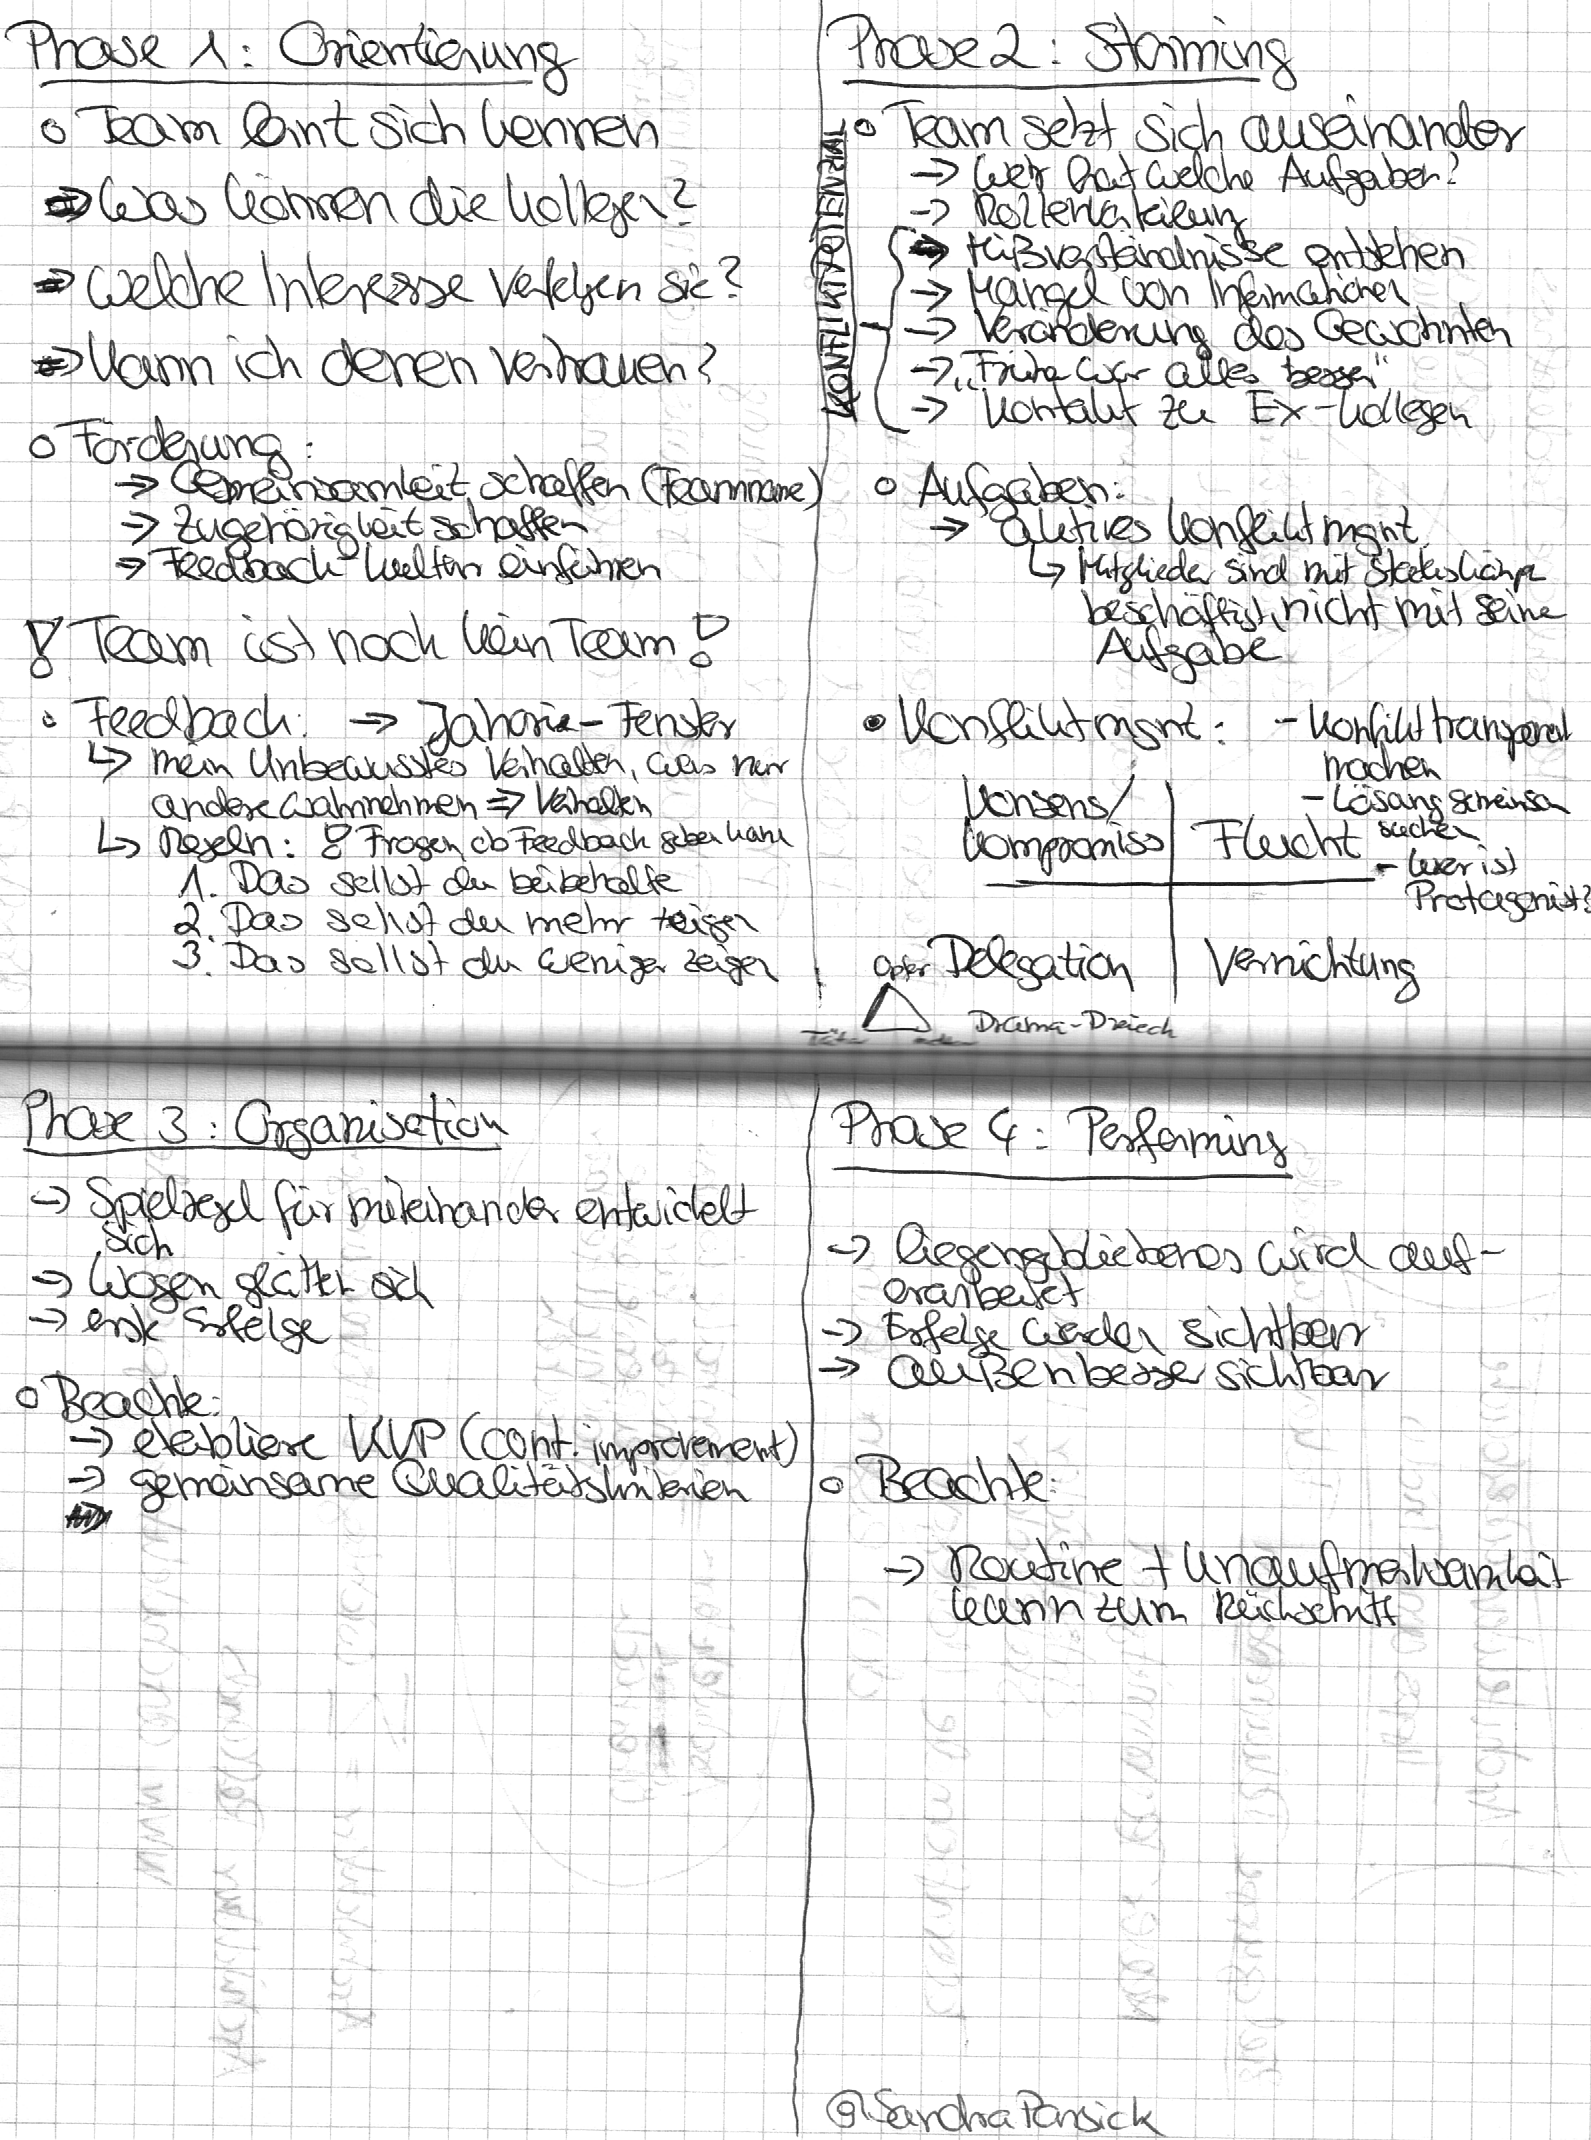 Phase 1: Orientierung
○ Team lernt sich kennen
⇒ Was können die Kollegen?
⇒ Welche Interesse verfolgen sie?
⇒ Kann ich denen vertrauen?
○ Förderung:
→ Gemeinsamkeit schaffen (Teamname)
→ Zugehörigkeit schaffen
→ Feedback-Kultur einführen
! Team ist noch kein Team !
○ Feedback: → Johari-Fenster
↳ mein Unbewusstes Verhalten, was nur
andere wahrnehmen ⇒ Verhalten
↳ Regeln: ! Fragen, ob Feedback geben kann
1. Das sollst du beibehalte
2. Das sollst du mehr zeigen
3. Das sollst du weniger zeigen
Phase 2: Storming
○ Team setzt sich auseinander
→ Wer hat welche Aufgaben?
→ Rollenverteilung
KONFLIKTPOTENTIAL
→ Mißverständnisse entstehen
→ Mangel von Informationen
→ Veränderung des Gewohnten
→ „Früher war alles besser"
→ Kontakt zu Ex-Kollegen
○ Aufgaben:
→ aktives Konfliktmgnt.
↳ Mitglieder sind mit Statuskämpfe
beschäftigt, nicht mit seine
Aufgabe
● Konfliktmgnt: - Konflikt transparent
machen
- Lösung gemeinsam
suchen
- Wer ist
Protagonist?
Konsens/
Kompromiss
Flucht
Delegation
Vernichtung
Opfer
Täter
Drama-Dreieck
Phase 3: Organisation
→ Spielregel für miteinander entwickelt
sich
→ Wogen glätten sich
→ erste Erfolge
○ Beachte:
→ etabliere KVP (cont. improvement)
→ gemeinsame Qualitätskriterien
Phase 4: Performing
→ liegengebliebenes wird auf-
erarbeitet
→ Erfolge werden sichtbar
→ außen besser sichtbar
○ Beachte:
→ Routine + Unaufmerksamkeit
kann zum Rückschritt
@SandraParsick